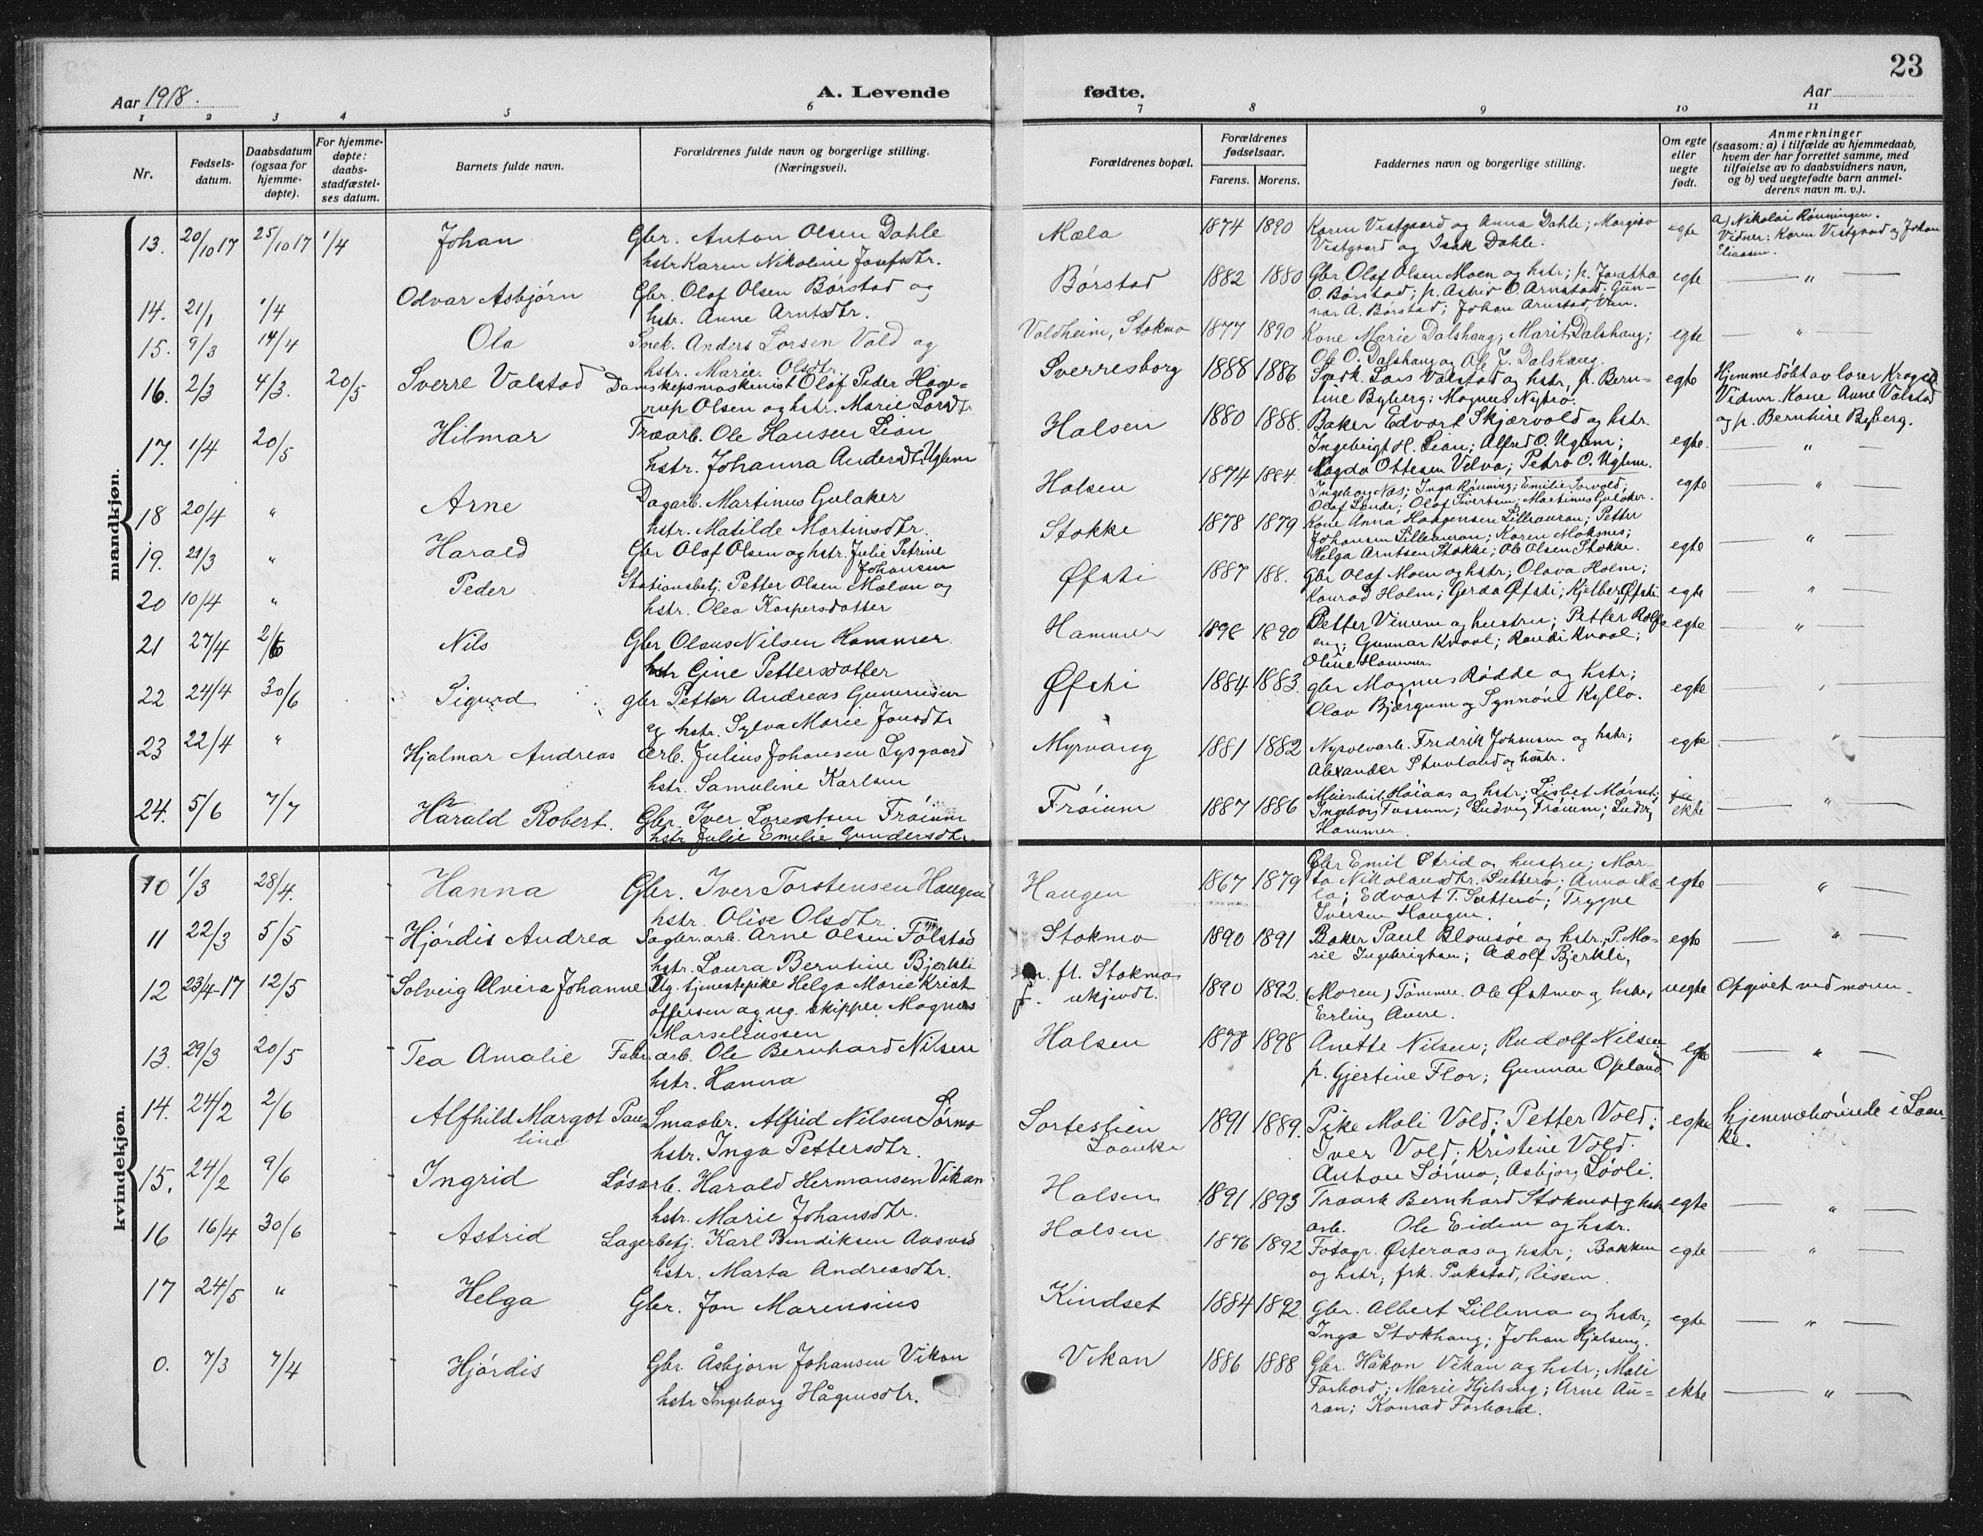 23
Aar 1918.
A. Levende
fødte.
Aar
1 2 3 4 5 6 7 8 9 10 11
Nr.
Fødsels-
datum.
Daabsdatum
(ogsaa for
hjemme-
døpte).
For hjemme-
døpte:
daabs-
stadfæstel-
ses datum.
Barnets fulde navn.
Forældrenes fulde navn og borgerlige stilling.
(Næringsvei).
Forældrenes bopæl.
Forældrenes
fødselsaar.
Farens. Morens.
Faddernes navn og borgerlige stilling.
Om egte
eller
uegte
født.
Anmerkninger
(saasom: a) i tilfælde av hjemmedaab,
hvem der har forrettet samme, med
tilføielse av to daabsvidners navn,
og b) ved uegtefødte barn anmel-
derens navn m. v.).
mandkjøn.
13. 20/10 17 25/10 17 1/4 Johan Gbr. Anton Olsen Dahle
hstr Karen Nikoline Josefsdtr.
Mæla 1874 1890 Karen Vistgaard og Anna Dahle; Margido
Vistgaard og Isak Dahle. egte
a) Nikolai Rønningen.
Vidner: Karen Vistgaard og Johan
Eliassen.
14. 21/1 1/4 Odvar Asbjørn Gbr. Olaf Olsen Børstad og
hstr. Anne Arntsdtr.
Børstad 1882 1880 Gbr Olaf Olsen Moen og hstr; p.
O. Børstad; p. Astrid O. Arnstad; Gun-
nar A. Børstad; Johan Arnstad, egte — " —
15. 9/3 14/4 Ola Snek. Anders Larsen Vold og
hstr. Marie Olsdtr.
Voldheim, Stokmo 1877 1890 Kone Marie Dalshaug; Marit Dalshaug;
Ole O. Dalshaug og Ole J. Dalshaug. egte — " —
16. 2/3 4/3. 20/5 Sverre Valstad Damskepsmaskinist Olaf Peder Hage-
rup Olsen og hstr. Marie Larsdtr
Sverresborg 1888 1886 Lars Valstad og hstr, p. Bern-
tine Byberg; Magnus Nybro. egte
Hjemmedøbt av lærer
Vidner. Kone Anne Valstad
og p. Berntine Byberg.
17. 1/4 20/5 Hilmar Træarb. Ole Hansen Lian
hstr. Johanna Andersdtr Uglem
Halsen 1880 1888. Baker Edvart Skjærvold og hstr.
Ingebrigt H. Lian; Alfred O. Uglem;
Magda Ottesen Velva; Petra O. Uglem. egte. — " —
18 20/4 " Arne Dagarb. Martinus Gulaker
hstr. Matilde Martinsdtr.
Halsen 1874 1884. Ingeborg Næs; Inga Rønning; Emilie
Olaf Lunde; Olaf Sivertsen; Martinus Gulaker. egte — " —
19. 21/3 " Harald Gbr Olaf Olsen og hstr. Julie Petrine
Johansen
Stokke 1878 1879 Kone Anna Haagensen Lilleauran; Petter
Johansen Lilleauran; Karen Moksnes;
Helga Arntsen Stokke; Ole Olsen Stokke. egte — " —
20 10/4 " Peder Stationsbetj. Petter Olsen Mælan og
hstr. Olea Kaspersdatter
Øfsti 1887 188. Gbr Olaf Moen og hstr; Olava Holm;
Konrad Holm; Gerda Øfsti; Kjelber Øfsti. egte — " —
21 27/4 2/6 Nils Gbr Olaus Nilsen Hammer
hstr Gine Pettersdatter
Hammer 1890 Petter Vinum og hustru; Petter
Gunnar Kvaal; Randi Kvaal;
Oline Hammer. egte — " —
22 24/4 30/6 Sigurd gbr Petter Andreas Gunnesen
og hstr. Sylva Marie Jonsdtr
Øfsti 1884. 1883. gbr Magnus Rødde og hstr;
Olav Bjørgum og Synnøve Kyllo. egte — " —
23 22/4 " Hjalmar Andreas Arb. Julius Johansen Lysgaard
hstr. Samuline Karlsen
Myrvang 1881 1882 Nysølvarb. Fredrik Johansen og hstr;
Alexander Stuvland og hustr. egte — " —
24. 5/6 7/7 Harald Robert. Gbr. Iver Lorentsen Frøium
hstr Julie Emelie Gundersdtr.
Frøium 1887 1886 og hstr; Lisbet
Ingeborg Fossum; Ludvig Frøium; Ludvig
Hammer. ekte — " —
kvindekjøn.
10 1/3 28/4. Hanna Gbr. Iver Torstensen Haugen
hstr. Olise Olsdtr.
Haugen 1867 1879 Gbr Emil Strid og hustru; Mar-
ta Nikolausdtr. Sutterø; Anna Mæ-
la; Edvart T. Sutterø; Trygve
Iversen Haugen. egte — " —
11 22/3 5/5 Hjørdis Andrea Sagbr.arb. Arne Olsen Folstad
hstr. Laura Berntine Bjerkli
Stokmo 1890 1891 Baker Paul Blomsøe og hstr. P. Ma-
rie Ingebrigtsen; Adolf Bjerkli, egte — " —
12 23/4-17 12/5 Solveig Alvira Johanne Ug. tjenestepike Helga Marie Krist-
offersen og ug. skipper Magnus
Marseliussen
m. fl. Stokmo
f. ukjendt. 1890 1892. (Moren) Tømmer. Ole Østmo og hstr,
Erling Aune. uegte Opgivet ved moren.
13. 29/3 20/5 Tea Amalie Fabr.arb. Ole Bernhard Nilsen
hstr. Hanna
Halsen 1898 1898 Anette Nilsen; Rudolf Nilsen
p. Gjertine Flor; Gunnar Opland egte — " —
14. 24/2 2/6 Alfhild Margot Pau-
line Smaabr. Alfrid Nilsen Sørmo
hstr. Inga Pettersdtr.
Sortestien
Laanke 1891 1889. Pike Mali Vold; Petter Vold;
Iver Vold; Kristine Vold.
Anton Sørmo; Asbjørn Løvli. egte hjemmehørende i Laan-
ke.
15. 24/2 9/6 Ingrid Løsarb. Harald Hermansen Vikan
hstr. Marie Johansdtr.
Halsen 1891 1893 Træarb Bernhard Stokmo og hstr
arb. Ole Eidem og hstr. egte — " —
16 16/4 30/6 Astrid Lagerbetj. Karl Bendiksen Aasved
hstr. Marta Andreasdtr.
Halsen 1876 1892 Fotogr. Østeraas og hstr; Bakken
og hstr; frk. Pukstad, Rissen. egte — " —
17 24/5 " Helga Gbr. Jon Marensius
Kindset 1884 1892 Gbr. Albert Lillemo og hstr;
Inga Stokhaug; Johan Hjelseng. egte — " —
0. 7/3 7/4 Hjørdis Gbr Åsbjørn Johansen Vikan
hstr Ingeborg Hågensdtr.
Vikan 1886 1888 Gbr. Håkon Vikan og hstr; Mali
Forbord; Marie Hjelseng; Arne Au-
ran; Konrad Forbord. ekte — " —